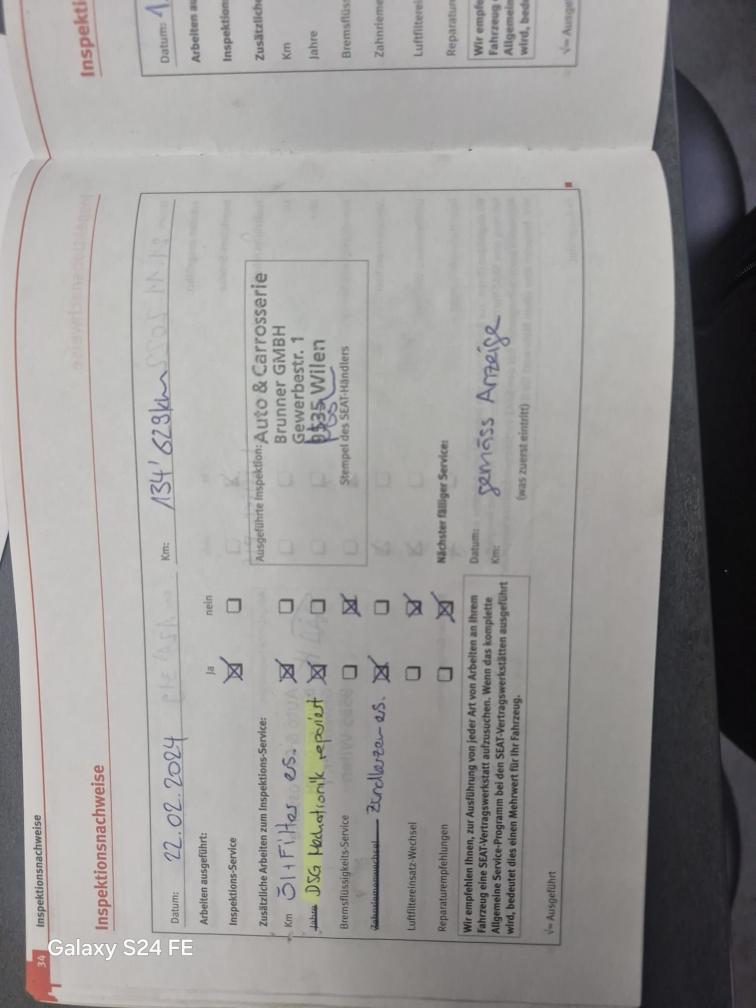 34
Inspektionsnachweise
Inspektionsnachweise
Datum: 22.02.2024 Km: 134'629km
Arbeiten ausgeführt: Ja nein
Inspektions-Service
Zusätzliche Arbeiten zum Inspektions-Service:
Km Öl+Filter es.
Jahre DSG Mechationik repariert
Bremsflüssigkeits-Service
Zahnriemenwechsel Zündkerzen es.
Luftfiltereinsatz-Wechsel
Reparaturempfehlungen
Ausgeführte Inspektion:
Auto & Carrosserie
Brunner GMBH
Gewerbestr. 1
9535 Wilen
Stempel des SEAT-Händlers
Nächster fälliger Service:
Datum:
Km:
gemäss Anzeige
(was zuerst eintritt)
Wir empfehlen Ihnen, zur Ausführung von jeder Art von Arbeiten an Ihrem
Fahrzeug eine SEAT-Vertragswerkstatt aufzusuchen. Wenn das komplette
Allgemeine Service-Programm bei den SEAT-Vertragswerkstätten ausgeführt
wird, bedeutet dies einen Mehrwert für Ihr Fahrzeug.
√= Ausgeführt
Inspekti
Datum: 1.
Arbeiten au
Inspektion
Zusätzliche
Km
Jahre
Bremsflüss
Zahnrieme
Luftfilterei
Reparatur
Wir empfe
Fahrzeug
Allgemein
wird, bede
√= Ausge
Galaxy S24 FE